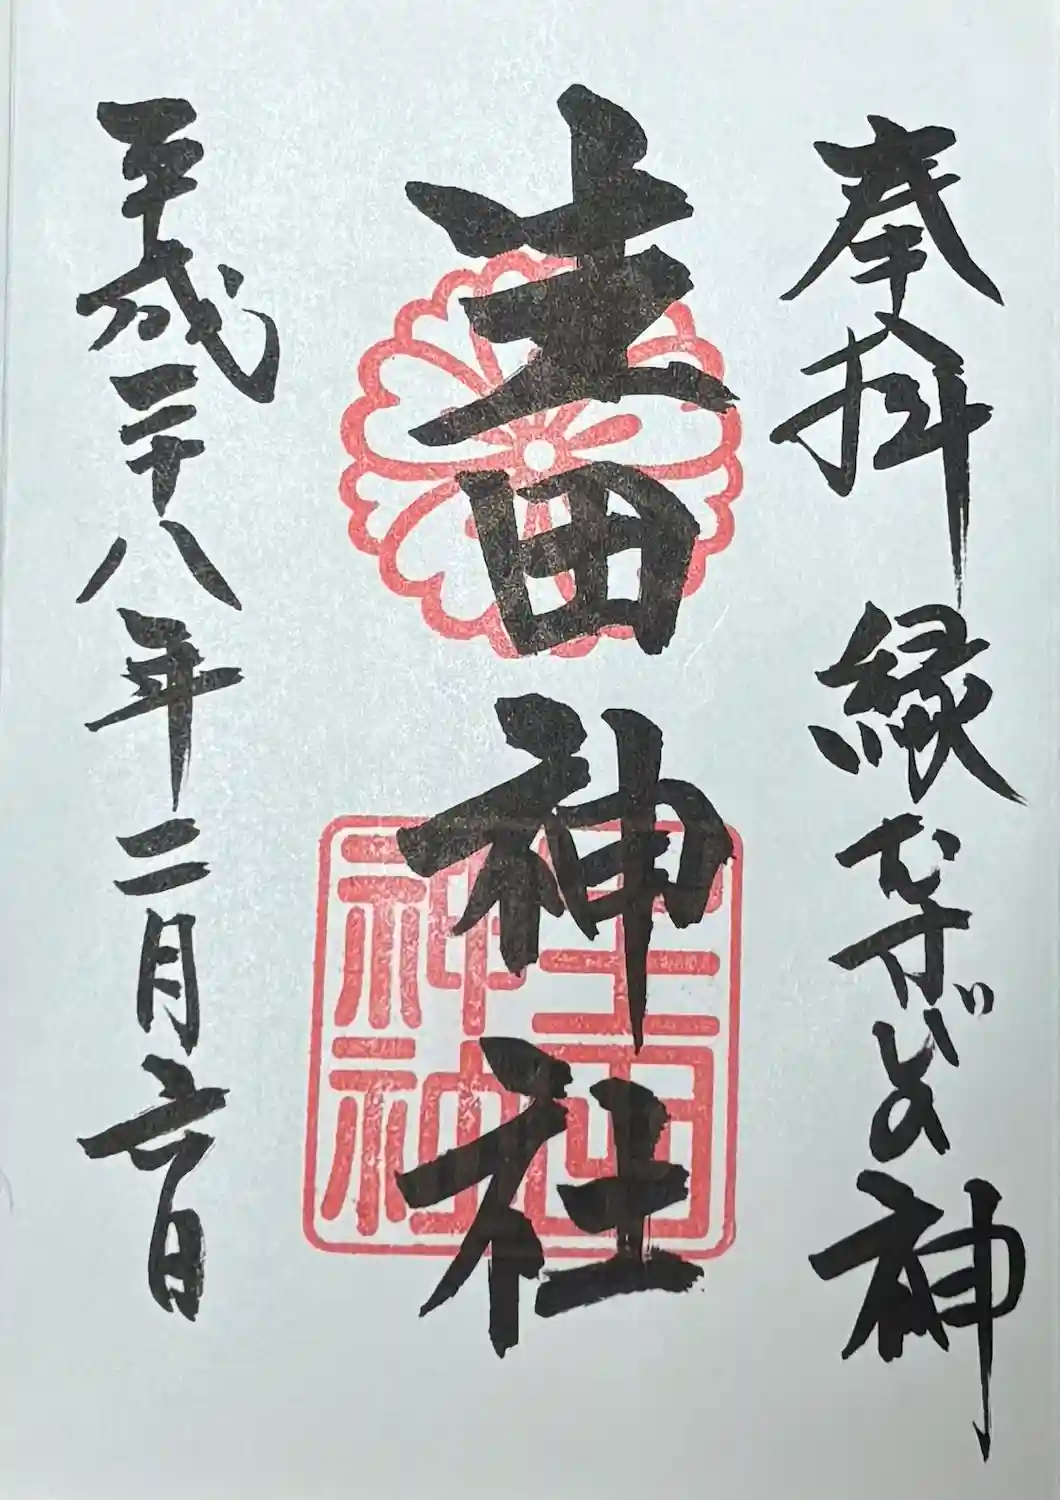 奉拝 縁むすびの神
生田神社
平成二十八年二月六日
生田
神